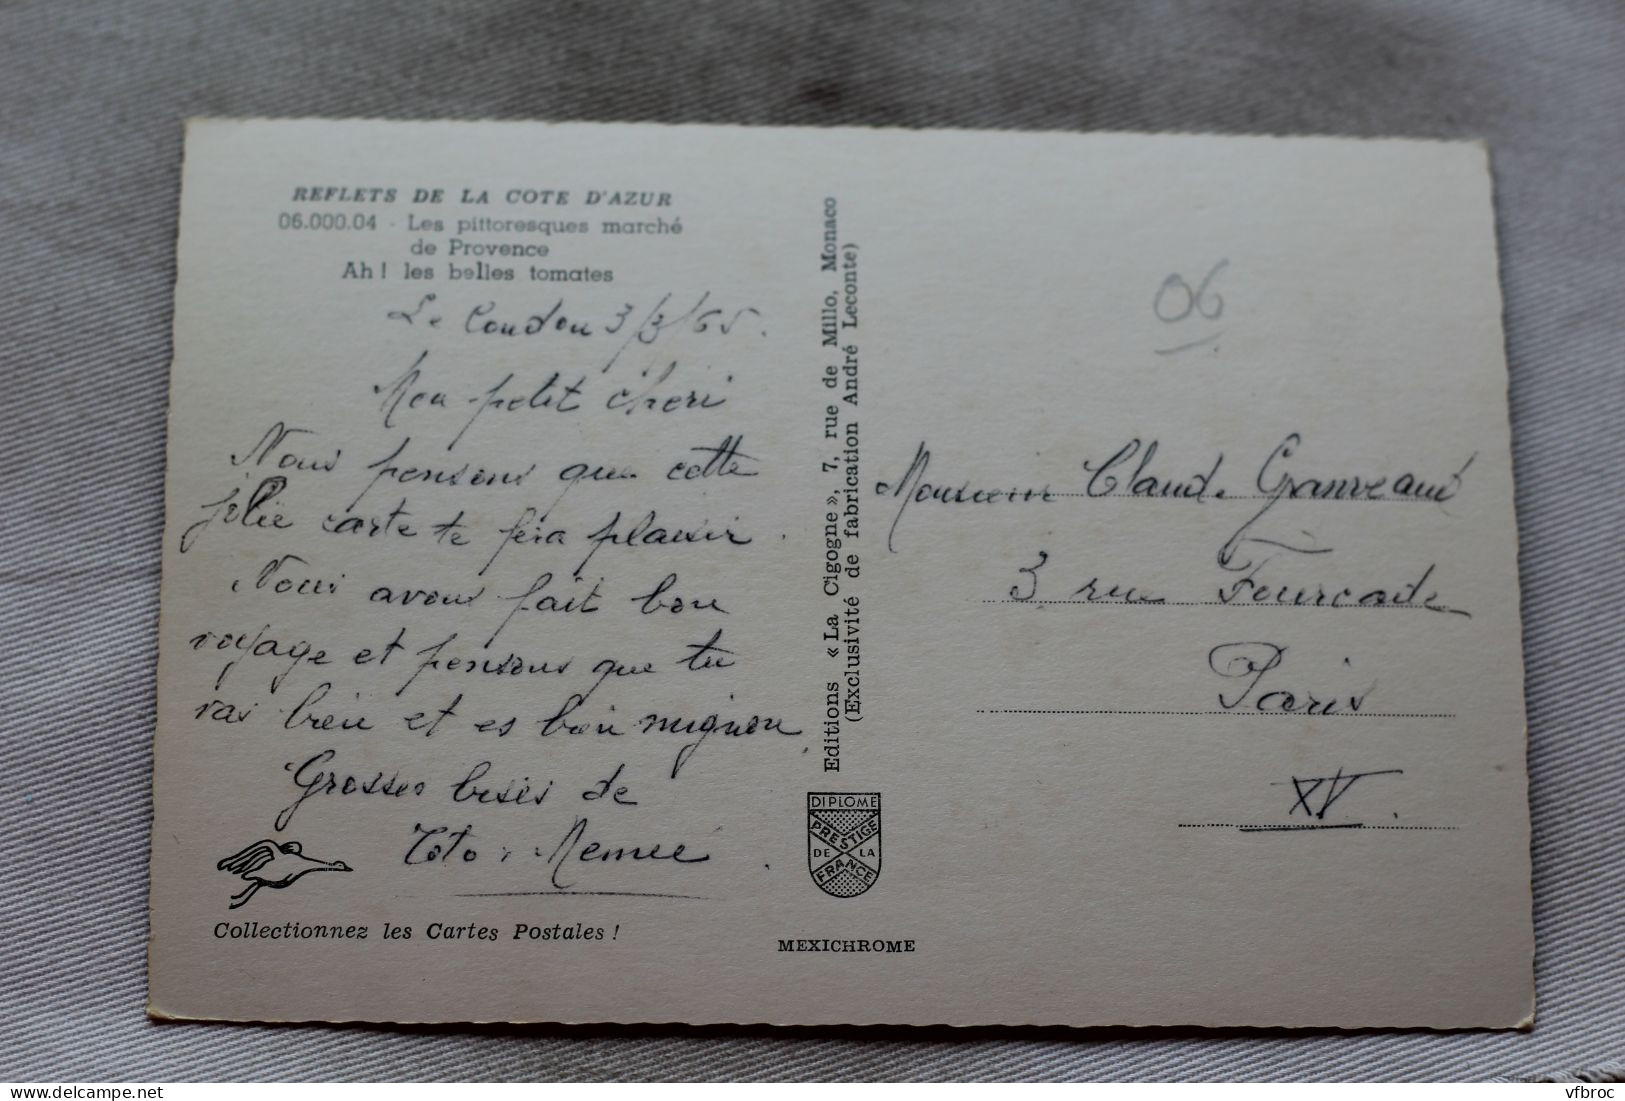 REFLETS DE LA COTE D'AZUR
06.000.04 - Les pittoresques marché
de Provence
Ah ! les belles tomates
Le Coudon 3/3/65.
Mon petit chéri
Nous pensons que cette
jolie carte te fera plaisir.
Nous avons fait bon
voyage et pensons que tu
vas bien et es bien mignon
Grosses bises de
Toto Memée
Collectionnez les Cartes Postales !
Editions « La Cigogne », 7, rue de Millo, Monaco
(Exclusivité de fabrication André Leconte)
DIPLOME
PRESTIGE
DE LA
FRANCE
MEXICHROME
06
Monsieur Claude
3 rue Fourcade
Paris
XV.
vfbroc
delcampe.net